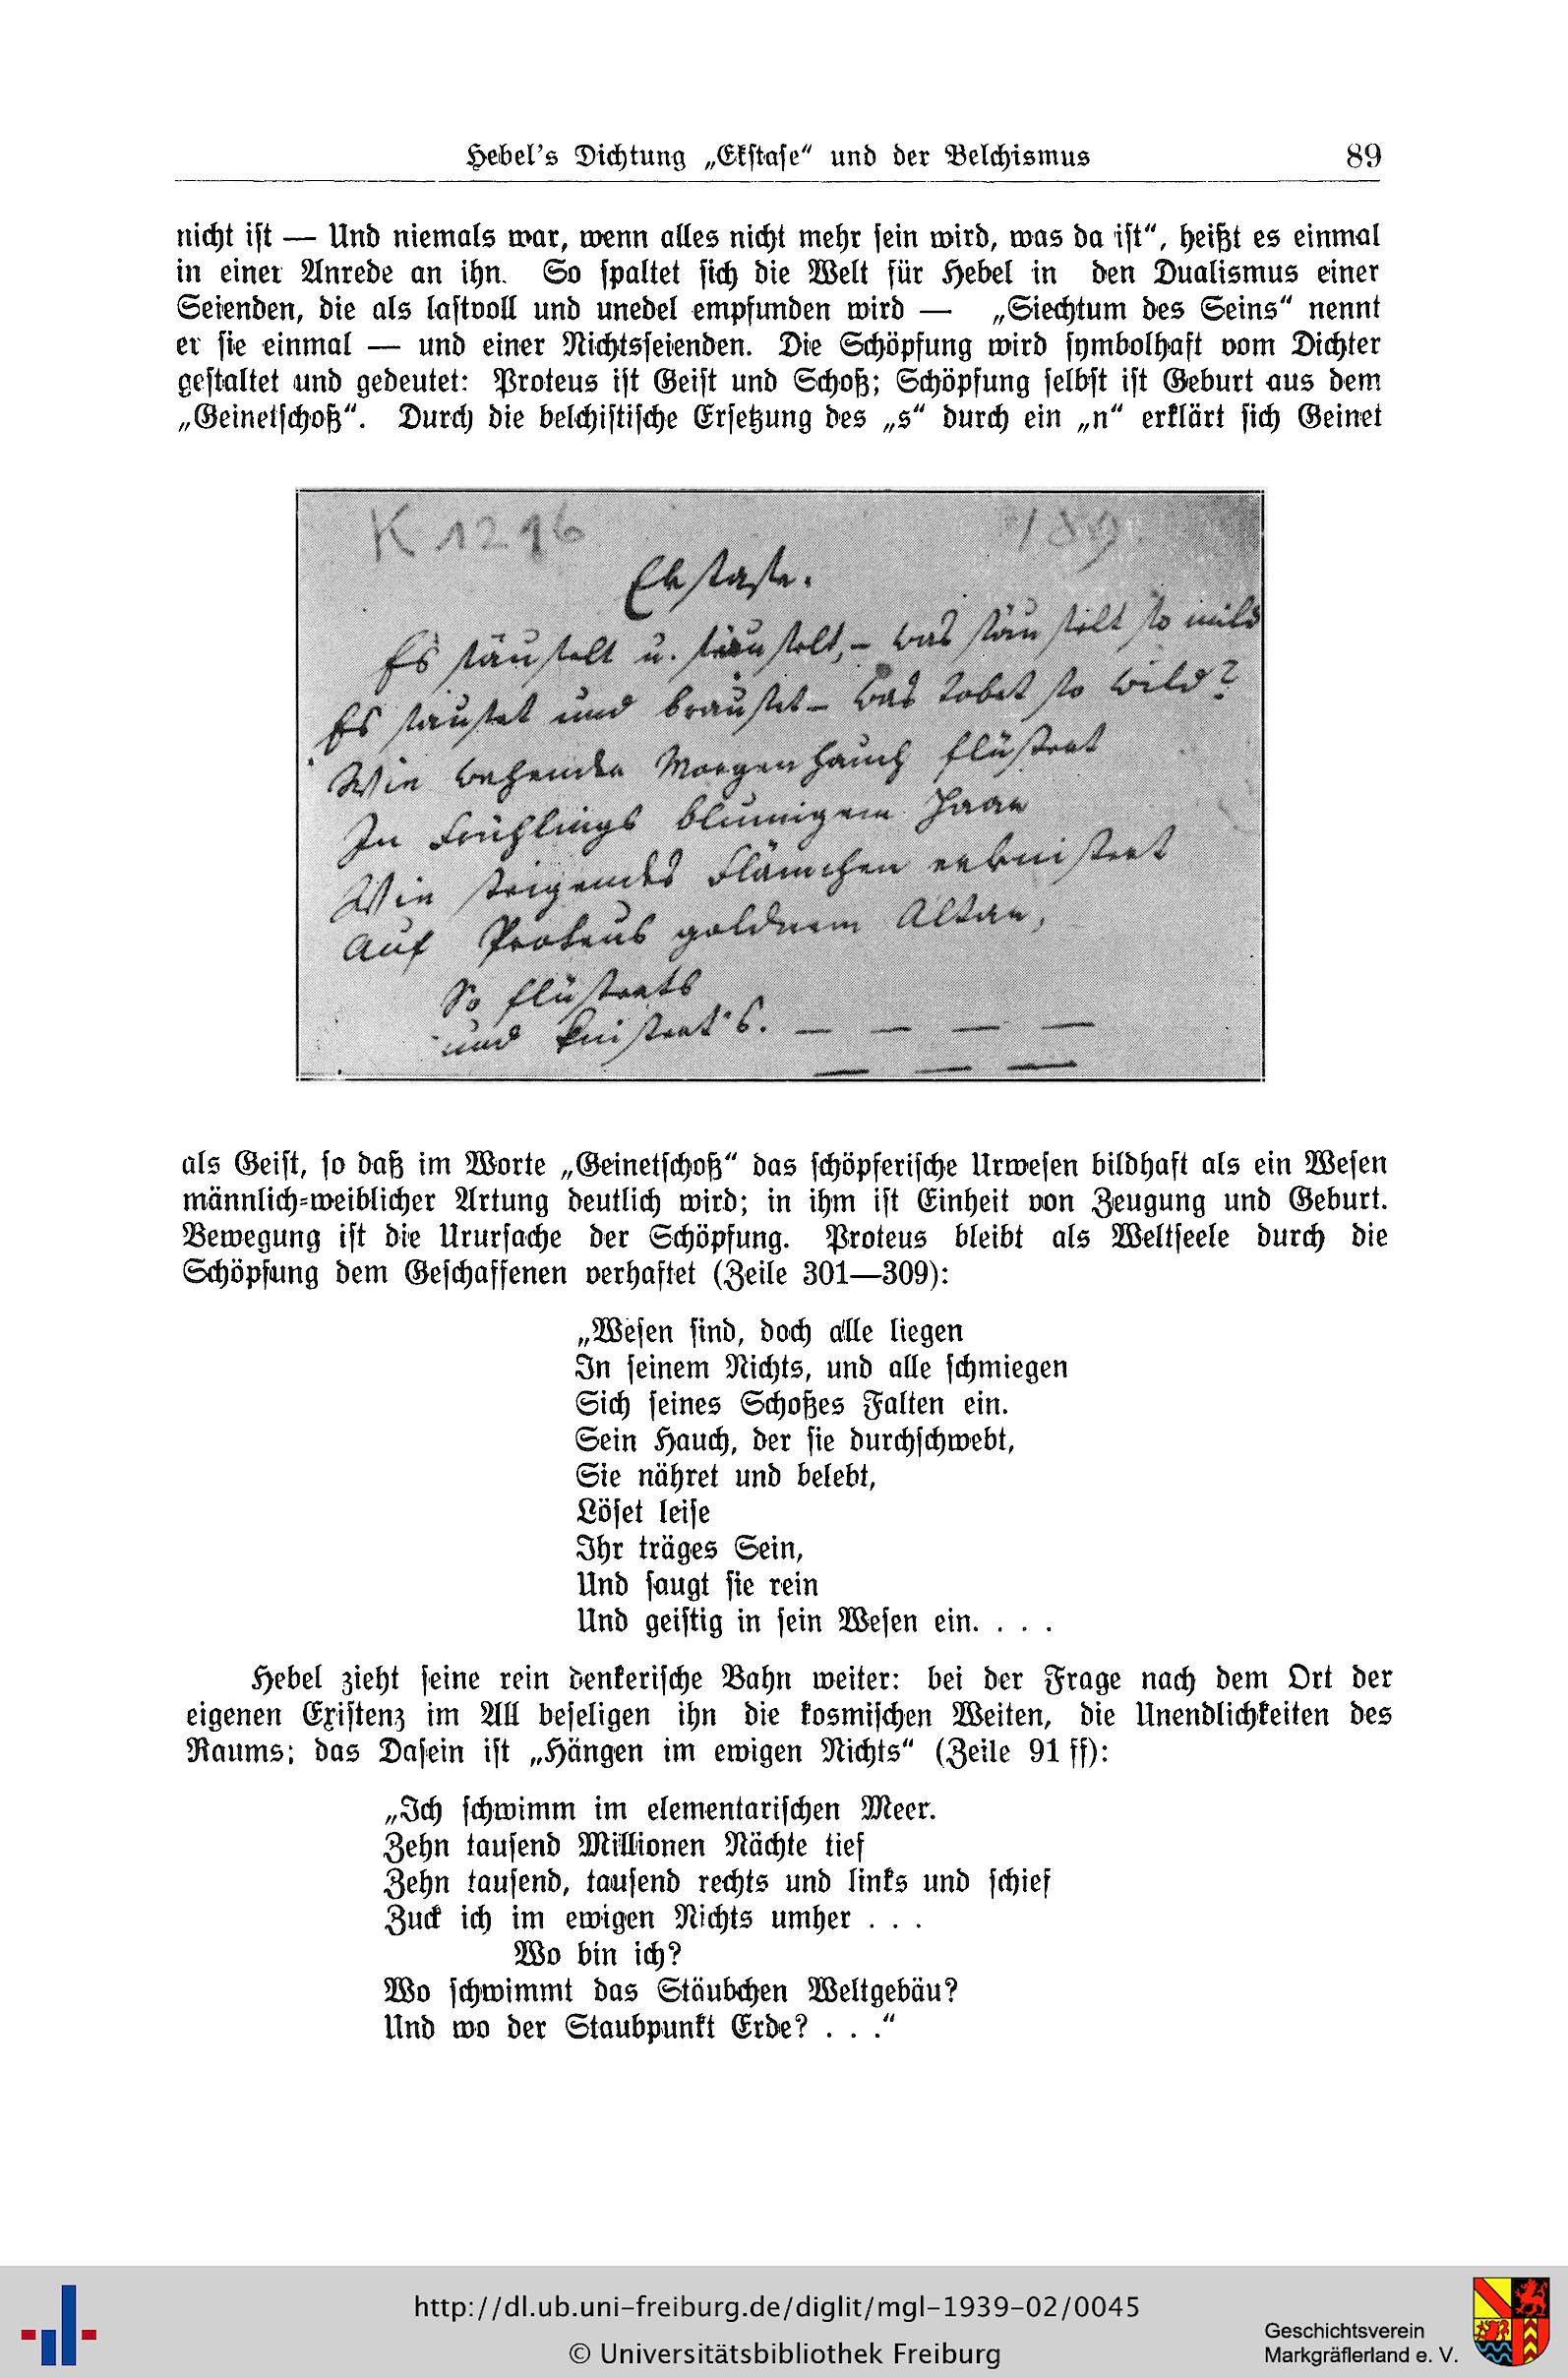 Hebel's Dichtung „Ekstase“ und der Belchismus 89
nicht ist — Und niemals war, wenn alles nicht mehr sein wird, was da ist“, heißt es einmal
in einer Anrede an ihn. So spaltet sich die Welt für Hebel in den Dualismus einer
Seienden, die als lastvoll und unedel empfunden wird — „Siechtum des Seins“ nennt
er sie einmal — und einer Nichtsseienden. Die Schöpfung wird symbolhaft vom Dichter
gestaltet und gedeutet: Proteus ist Geist und Schoß; Schöpfung selbst ist Geburt aus dem
„Geinetschoß“. Durch die belchistische Ersetzung des „s“ durch ein „n“ erklärt sich Geinet
K 1296 189
Ekstase.
Es säuselt u. säuselt, – was säuselt so mild
Es sauset und brauset – was tobet so wild?
Wie wehender Morgenhauch flüstert
In Frühlings blumigem Haar
Wie steigendes Flämchen erknistert
Auf Proteus goldnem Altar,
So flüsterts
und knistert's. — — — —
— — —
als Geist, so daß im Worte „Geinetschoß“ das schöpferische Urwesen bildhaft als ein Wesen
männlich-weiblicher Artung deutlich wird; in ihm ist Einheit von Zeugung und Geburt.
Bewegung ist die Urursache der Schöpfung. Proteus bleibt als Weltseele durch die
Schöpfung dem Geschaffenen verhaftet (Zeile 301—309):
„Wesen sind, doch alle liegen
In seinem Nichts, und alle schmiegen
Sich seines Schoßes Falten ein.
Sein Hauch, der sie durchschwebt,
Sie nähret und belebt,
Löset leise
Ihr träges Sein,
Und saugt sie rein
Und geistig in sein Wesen ein. . . .
Hebel zieht seine rein denkerische Bahn weiter: bei der Frage nach dem Ort der
eigenen Existenz im All beseligen ihn die kosmischen Weiten, die Unendlichkeiten des
Raums; das Dasein ist „Hängen im ewigen Nichts“ (Zeile 91 ff):
„Ich schwimm im elementarischen Meer.
Zehn tausend Millionen Nächte tief
Zehn tausend, tausend rechts und links und schief
Zuck ich im ewigen Nichts umher . . .
Wo bin ich?
Wo schwimmt das Stäubchen Weltgebäu?
Und wo der Staubpunkt Erde? . . .“
http://dl.ub.uni-freiburg.de/diglit/mgl-1939-02/0045
© Universitätsbibliothek Freiburg
Geschichtsverein
Markgräflerland e. V.